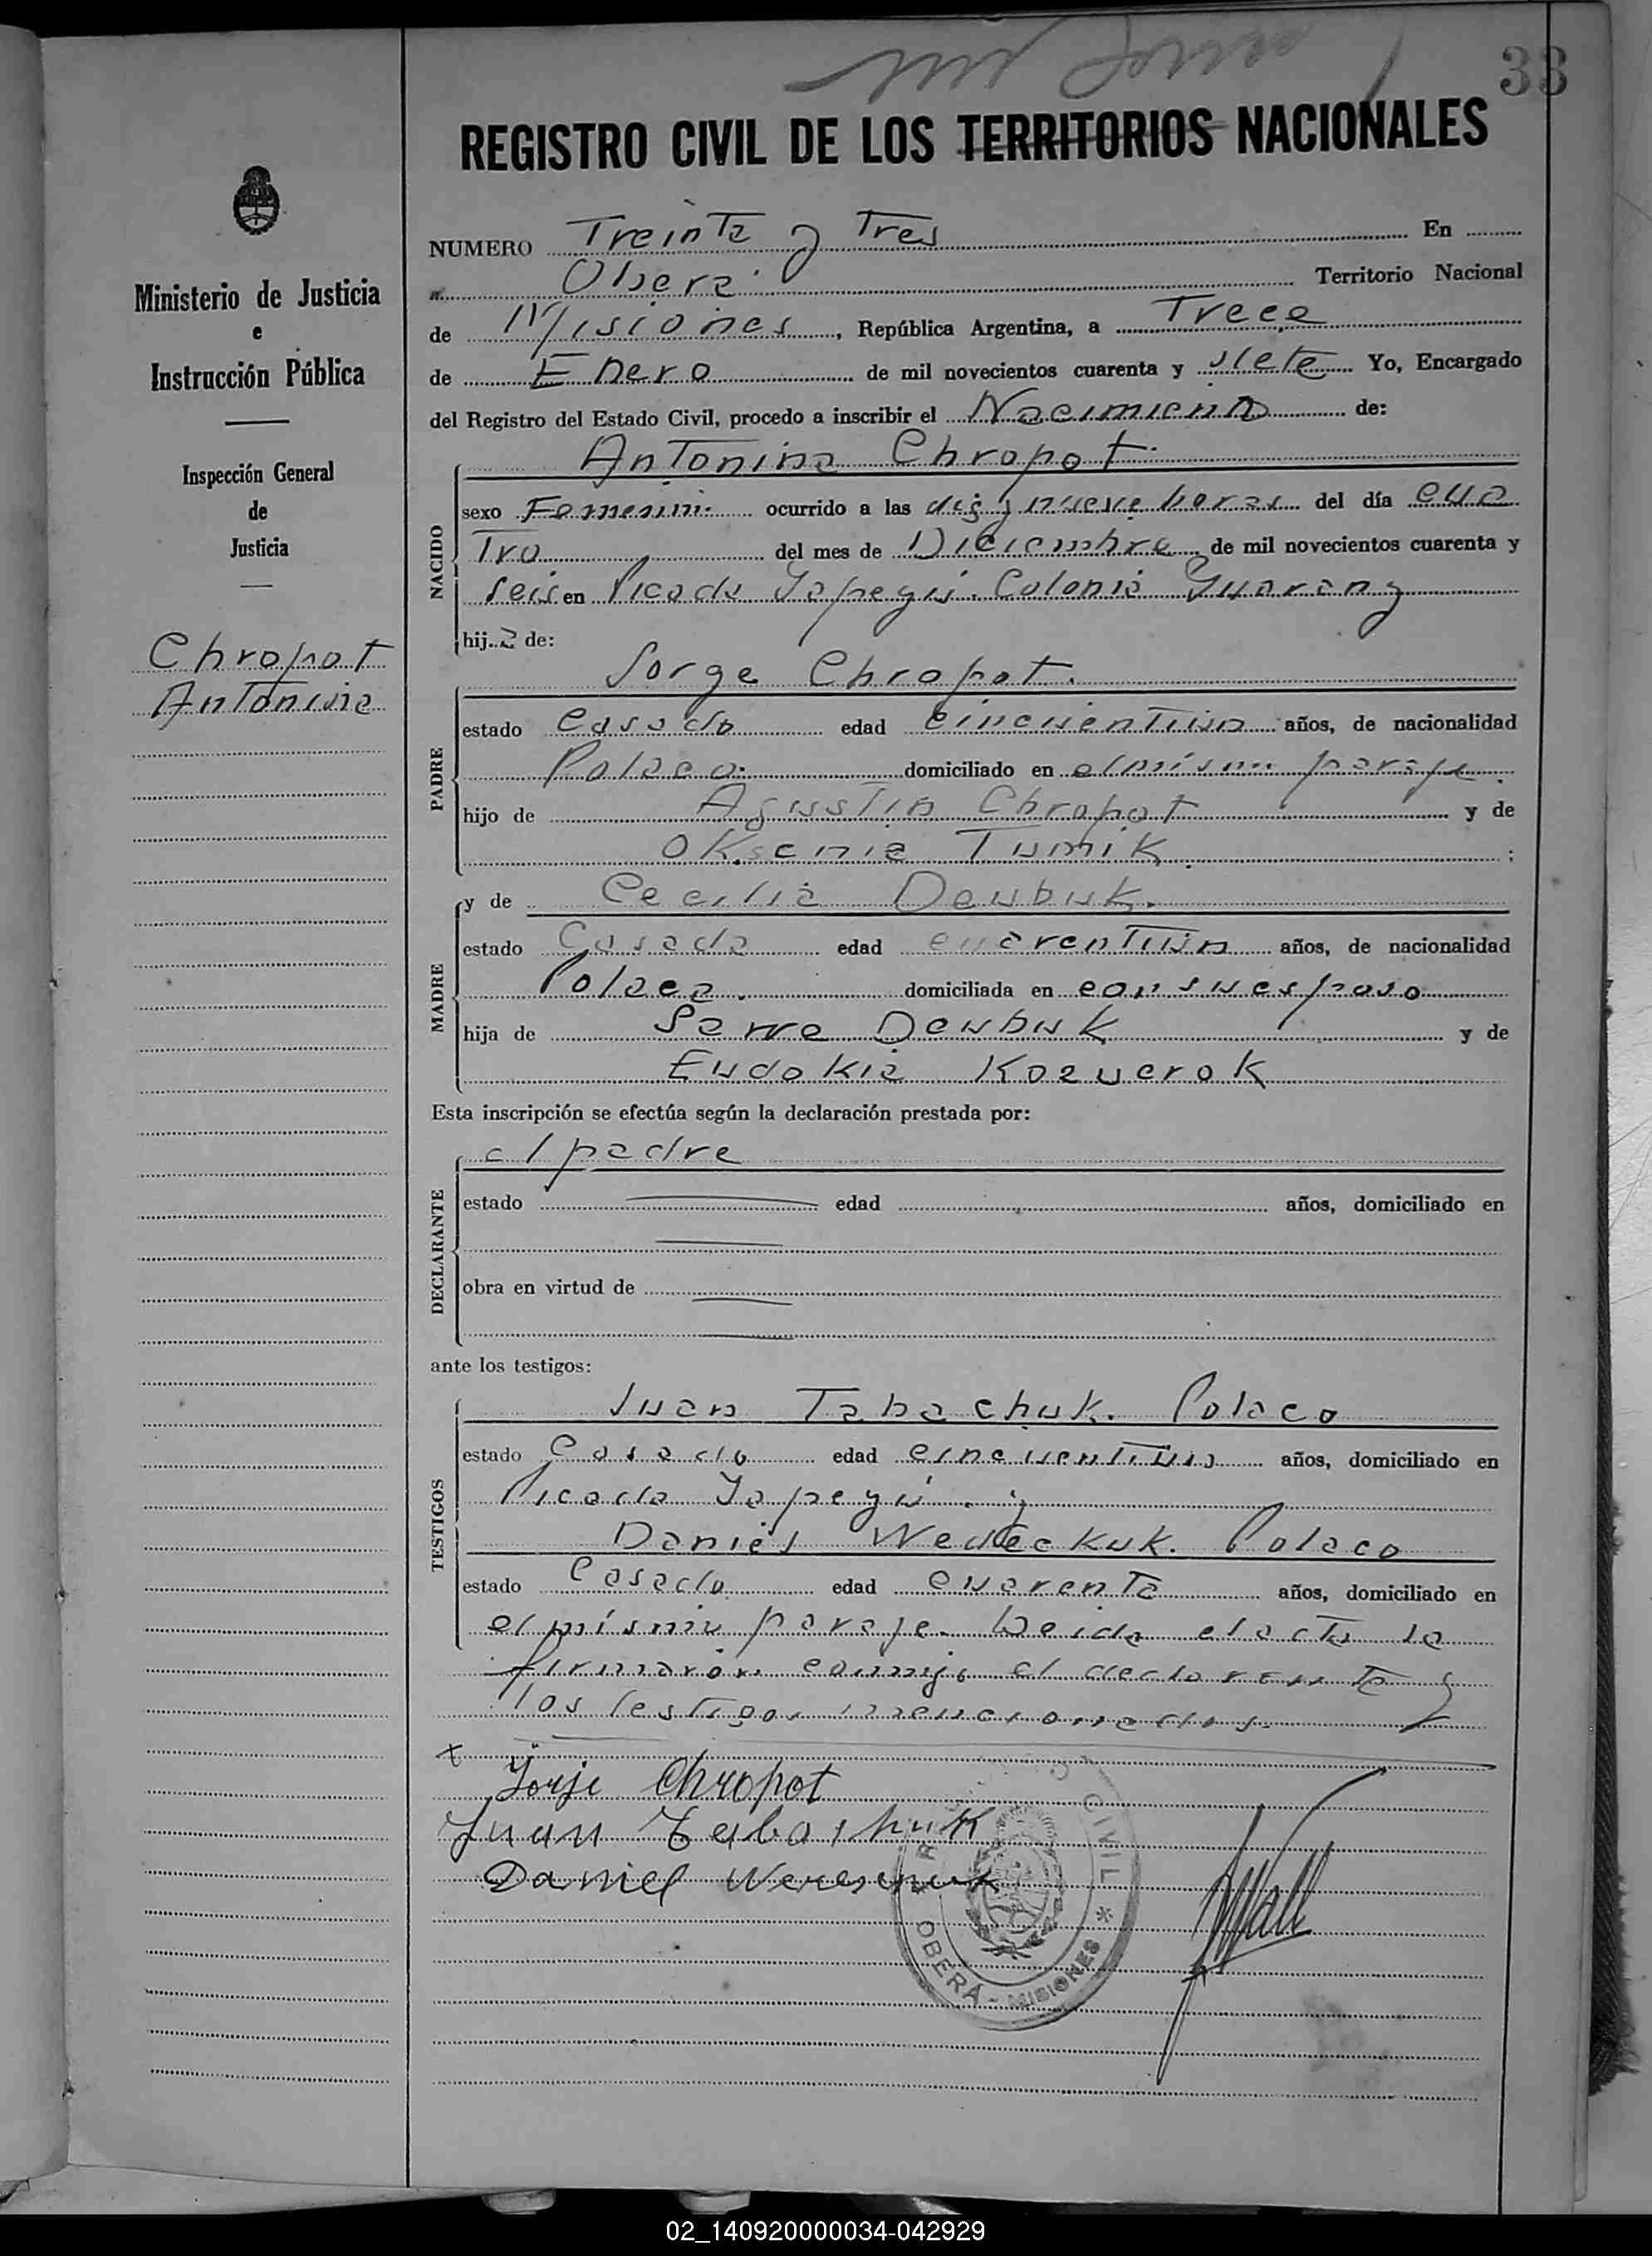 33
REGISTRO CIVIL DE LOS TERRITORIOS NACIONALES
Ministerio de Justicia
e
Instrucción Pública
Inspección General
de
Justicia
Chropot
Antonina
NUMERO Treinta y Tres En
Oberá Territorio Nacional
de Misiones, República Argentina, a Trece
de Enero de mil novecientos cuarenta y siete Yo, Encargado
del Registro del Estado Civil, procedo a inscribir el Nacimiento de:
NACIDO
Antonina Chropot.
sexo Femenino ocurrido a las diez y nueve horas del día cua
tro del mes de Diciembre de mil novecientos cuarenta y
seis en Picada Yapeyú. Colonia Guarany
hij a de:
PADRE
Jorge Chropot.
estado Casado edad cincuentiun años, de nacionalidad
Polaco. domiciliado en el mismo paraje.
hijo de Agustin Chropot y de
Oksenia Tumik. ;
MADRE
y de Cecilia Deubuk.
estado Casada edad cuarentiun años, de nacionalidad
Polaca. domiciliada en con su esposo
hija de Deubuk y de
Eudokia
Esta inscripción se efectúa según la declaración prestada por:
DECLARANTE
el padre
estado edad años, domiciliado en
obra en virtud de
ante los testigos:
TESTIGOS
Juan Tabachuk. Polaco
estado Casado edad cincuentiun años, domiciliado en
Picada Yapeyú. y
Daniel Polaco
estado Casado edad cuarenta años, domiciliado en
el mismo paraje. Leida el acta la
firmaron conmigo el declarante y
los testigos mencionados.
Jorje Chropot
Juan Tabachuk
Daniel
CIVIL
OBERÁ - MISIONES *
02_140920000034-042929